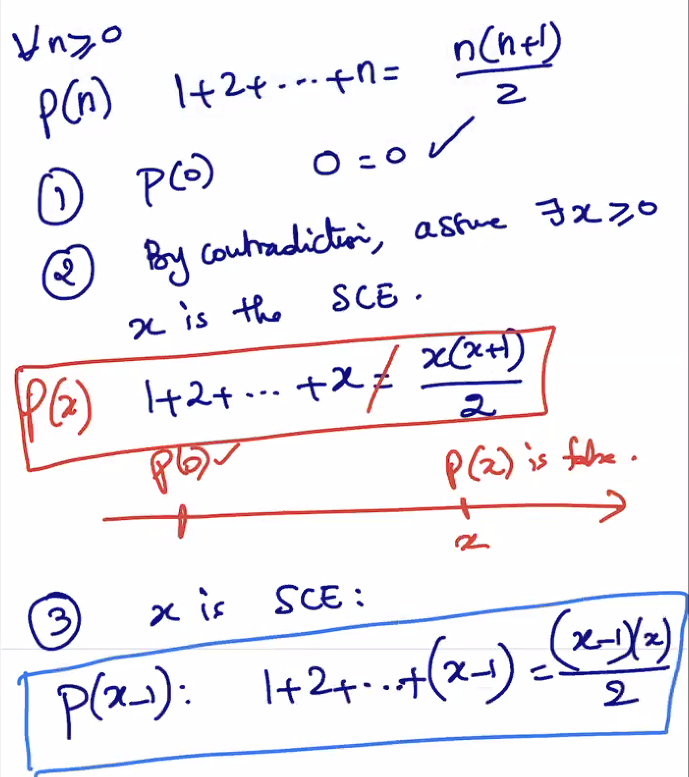 ∀n≥0
P(n) 1+2+...+n= n(n+1)/2
① P(0) 0=0 ✓
② By contradiction, assume ∃x≥0
x is the SCE.
P(x) 1+2+...+x≠ x(x+1)/2
P(0)✓ P(x) is false.
x
③ x is SCE:
P(x-1): 1+2+...+(x-1)=(x-1)(x)/2